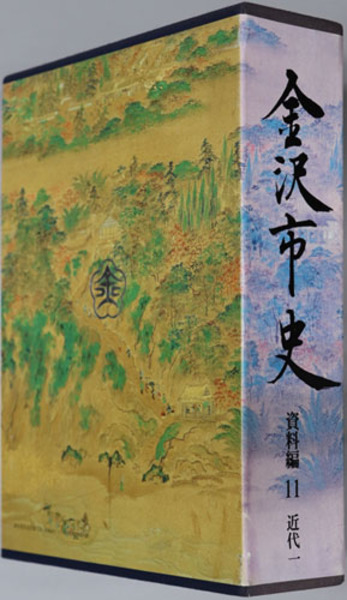 金沢市史
資料編 11 近代一
金